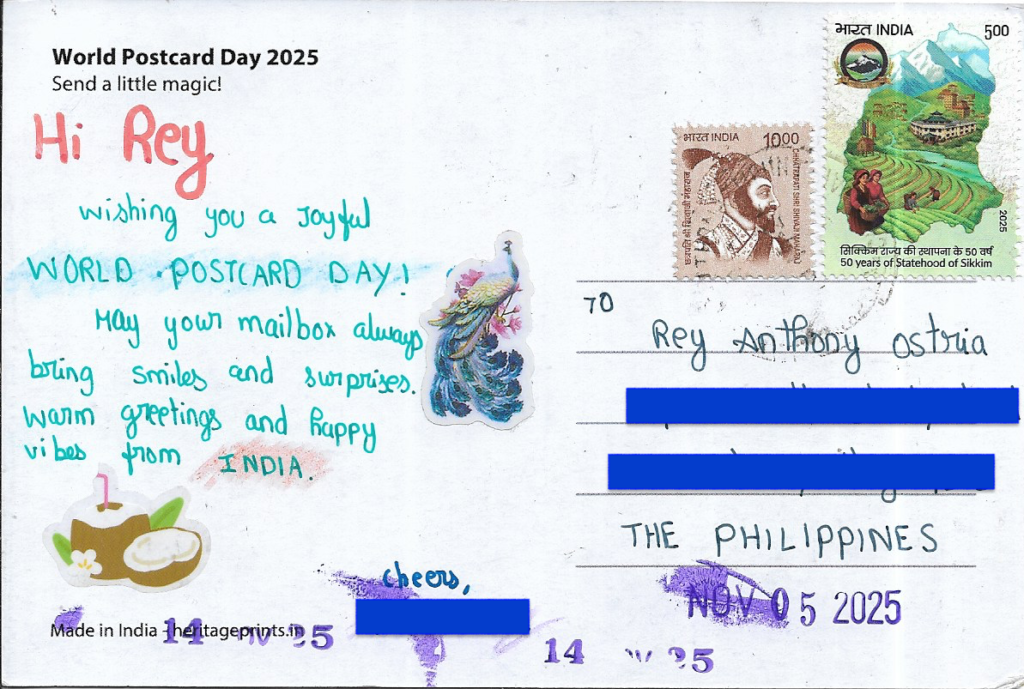 World Postcard Day 2025
Send a little magic!
Hi Rey
wishing you a Joyful
WORLD POSTCARD DAY!
May your mailbox always
bring smiles and surprises.
warm greetings and happy
vibes from INDIA.
cheers,
Made in India - heritageprints.in
14 NV 25
भारत INDIA 10.00
छत्रपति श्री शिवाजी महाराज
CHHATRAPATI SHRI SHIVAJI MAHARAJ
भारत INDIA 500
2025
सिक्किम राज्य की स्थापना के 50 वर्ष
50 years of Statehood of Sikkim
TO
Rey Anthony Ostria
THE PHILIPPINES
NOV 05 2025
14 25